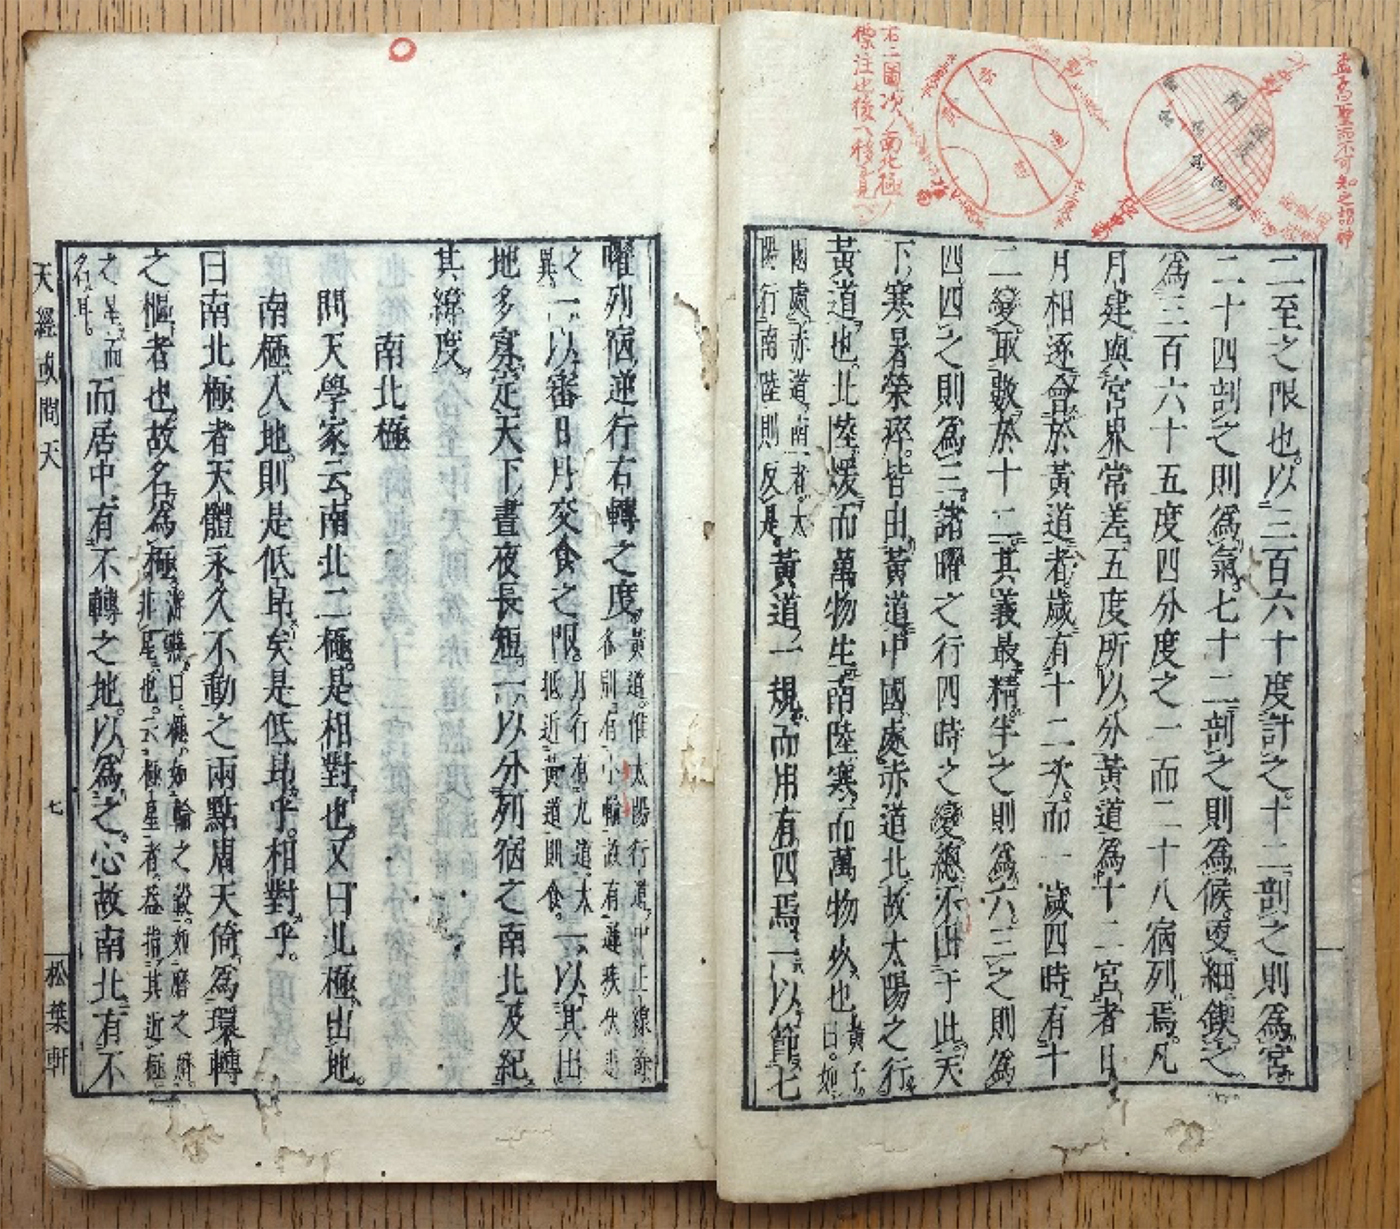 二至之限也以三百六十度計之十二剖之則為宮
二十四剖之則為氣七十二剖之則為候更細鍥之
為三百六十五度四分度之一而二十八宿列焉凡
月建與常界常差五度所以分黃道為十二宮者日
月相逐會於黃道者歲有十二次而一歲四時有十
二變取數於十二其義最精半之則為六三之則為
四四之則為三諸曜之行四時之變總不出于此天
下寒暑榮瘁皆由黃道中國處赤道北故太陽之行
黃道也北陸煖而萬物生南陸寒而萬物火也
黃子
曰如
國處赤道南者太
陽行南陸則反是
黃道一規而用有四焉一以節七
曜列宿逆行右轉之度
黃道惟太陽行道中止線餘
各別有小輪故有遲疾伏逆
之
異
一以審日月交食之限
月行有九道太
抵近黃道則食
一以其出
地多寡定天下晝夜長短一以分列宿之南北及紀
其緯度
南北極
問天學家云南北二極是相對也又曰北極出地
南極入地則是低昂矣是低昂乎相對乎
曰南北極者天體永久不動之兩點周天倚為環轉
之樞者也故名為極
曰極如輪之轂如磨之臍
非星也云極星者蓋指其近極
之星而
名耳
而居中有不轉之地以為之心故南北有不
天經或問天
七
松葉軒
孟子曰聖而不可知之謂神
右二圖次南北極
標注也後人移